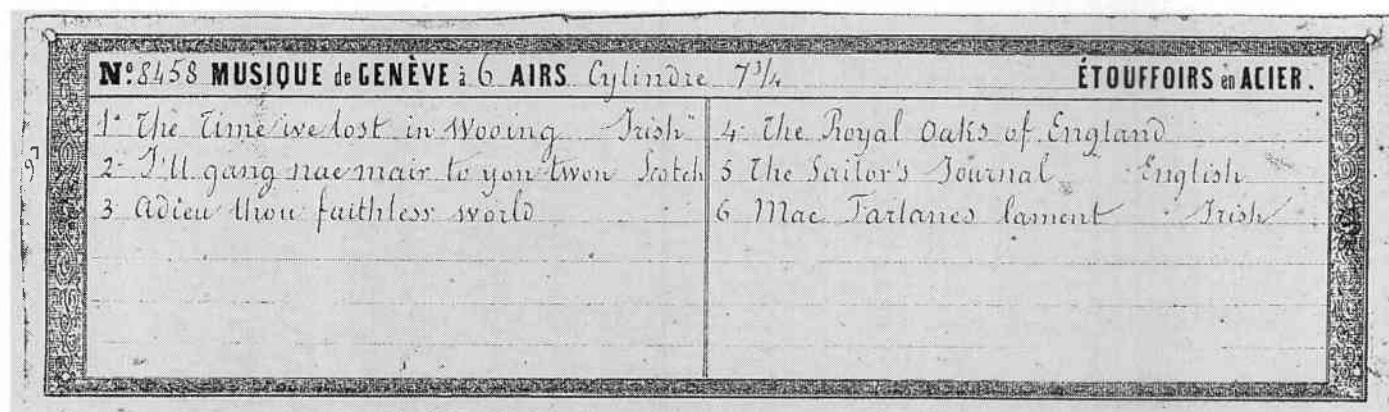 Nº 8458 MUSIQUE de GENÈVE à 6 AIRS Cylindre 7 3/4 ÉTOUFFOIRS en ACIER.
1 The Time we lost in Wooing Irish
2 I'll gang nae mair to yon twon Scotch
3 Adieu thou faithless world
4 The Royal Oaks of England
5 The Sailor's Journal English
6 Mac Farlanes lament Irish